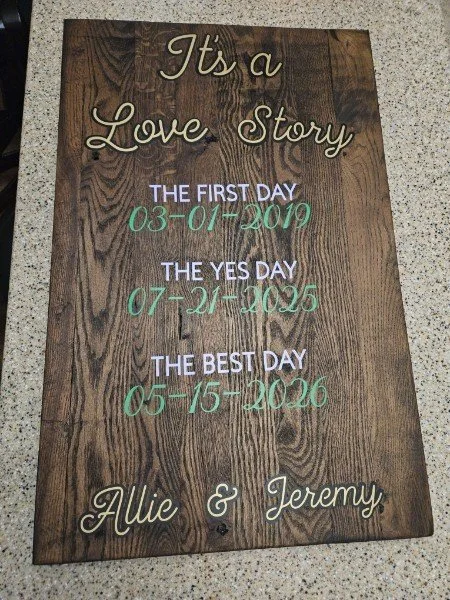 It's a
Love Story
THE FIRST DAY
03-01-2019
THE YES DAY
07-21-2025
THE BEST DAY
05-15-2026
Allie & Jeremy